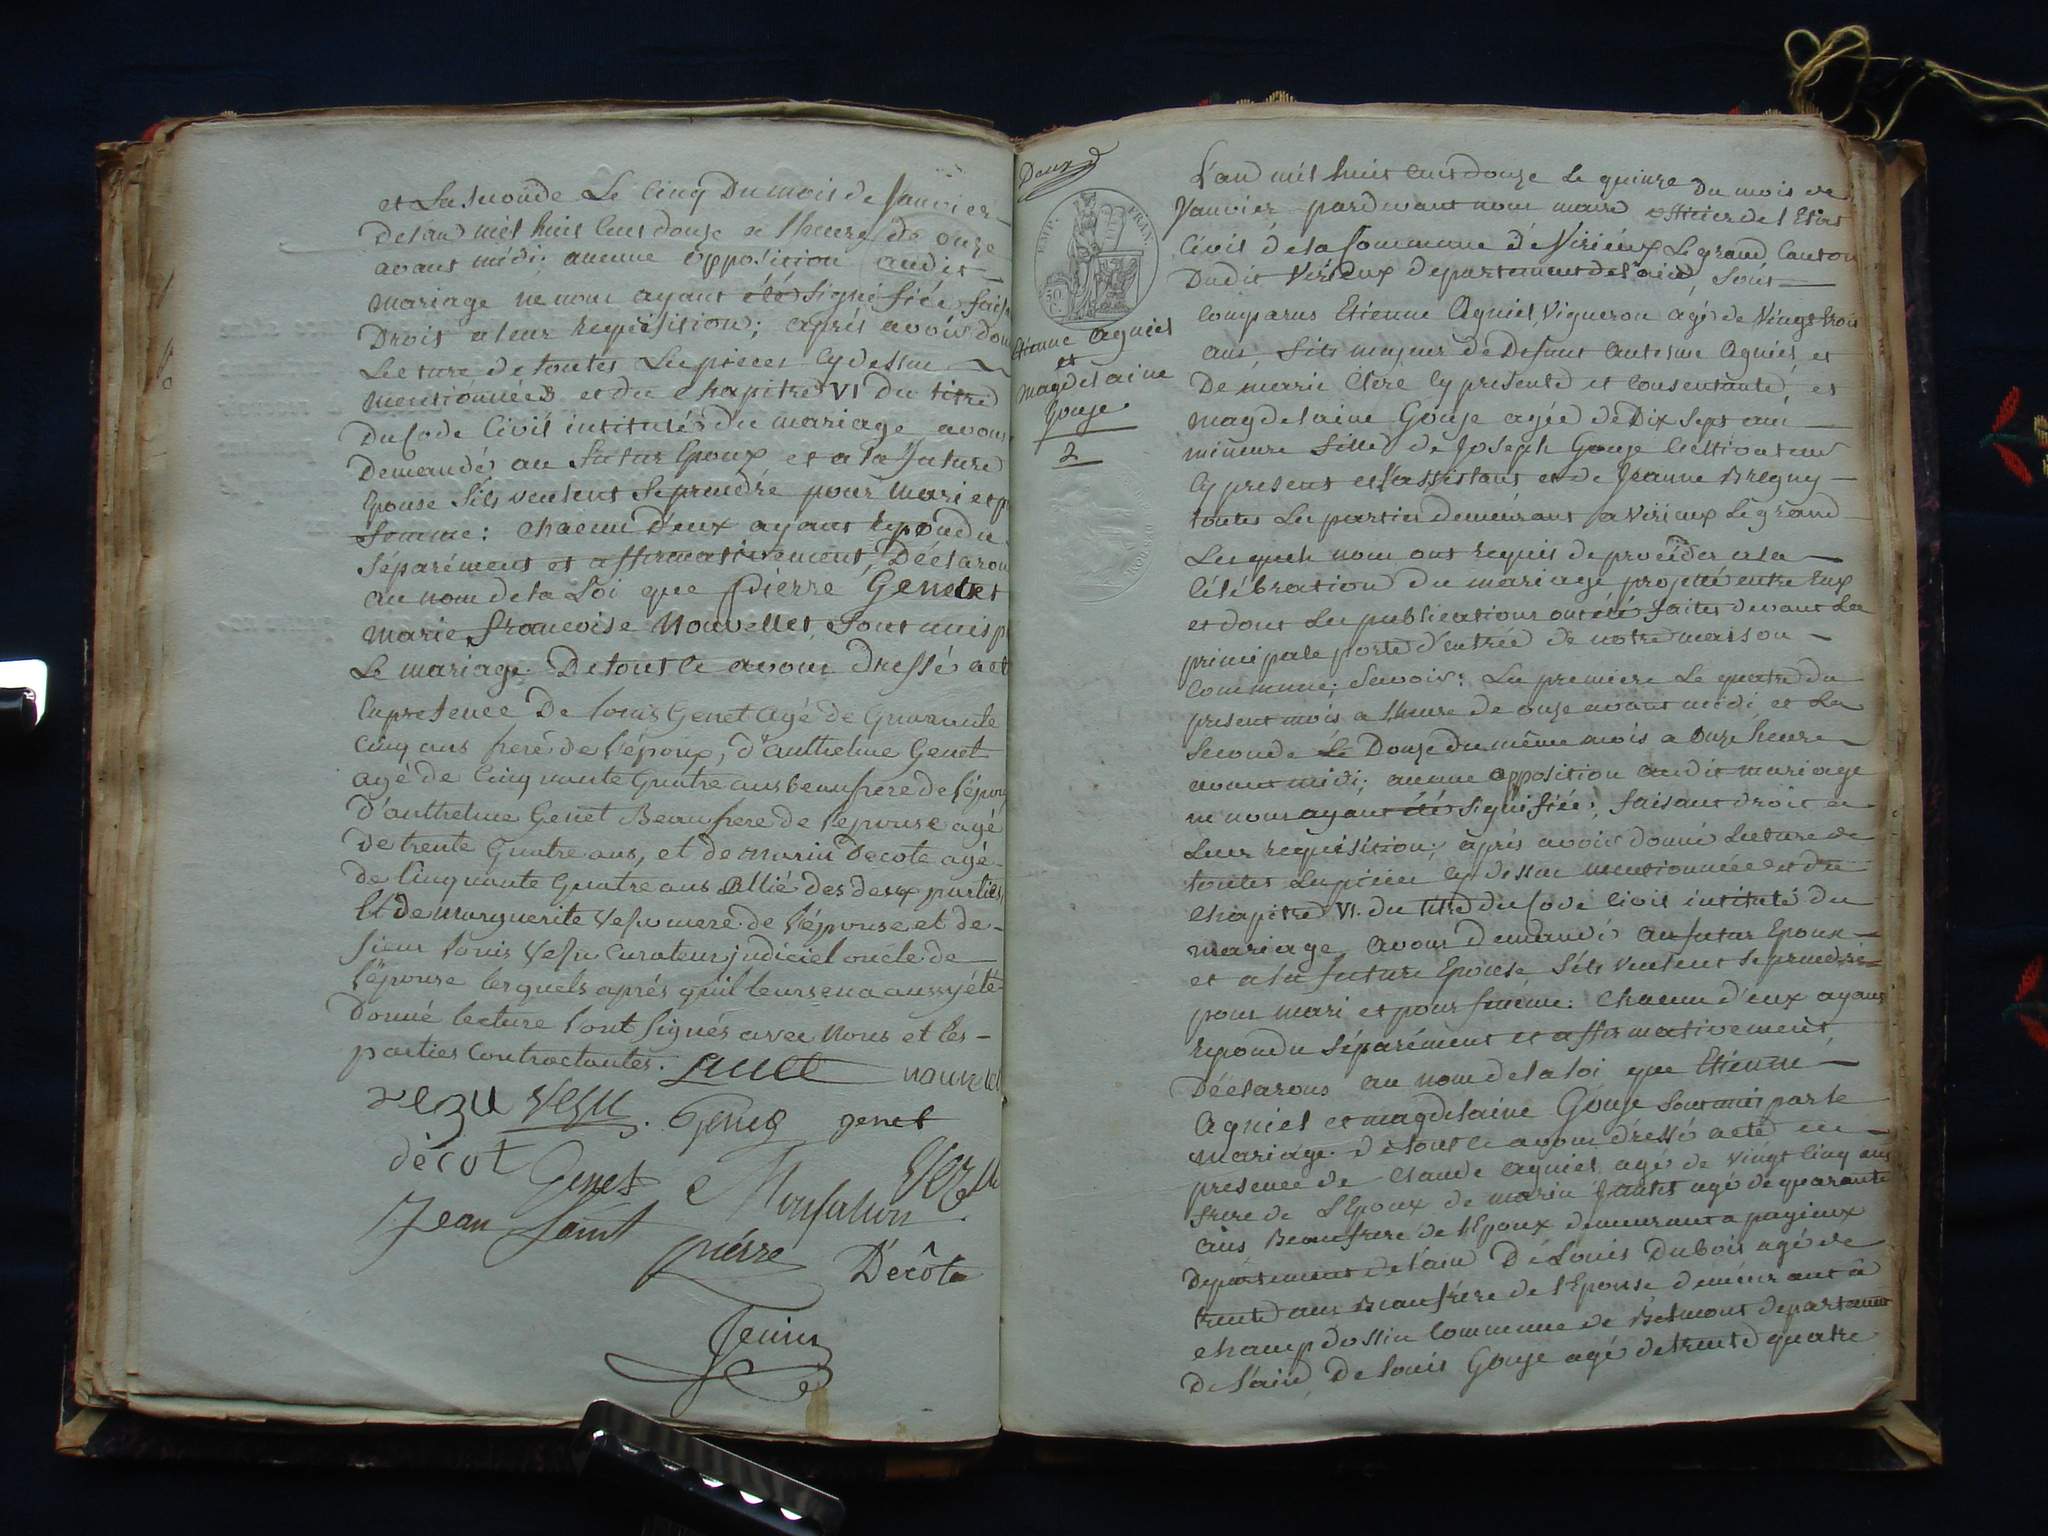 et La Seconde Le Cinq Du mois de Janvier
Delan mil huit Cent douze a lheure de onze
avant midi; aucune opposition audit
mariage ne nous ayant été Signifiée, fais
Droit a leur Requisition; après avoir don
Lecture de toutes Les pieces Cy dessus
mentionnées et du Chapitre VI Du titre
Du Code Civil intitulé du mariage avons
Demandé au futur Epoux et a la future
Epouse S'ils veulent Se prendre pour mari et p
femme: Chacun d'eux ayant Repondu
Séparément et affirmativement, Déclaron
au nom de la Loi que Pierre Genet et
Marie françoise Nouvellet Sont unis p
Le mariage. De tout Ce avons Dressé act
En presence De louis Genet agé de Quarante
cinq ans frere de l'époux, d'anthelme Genet
agé de Cinquante Quatre ans beaufrere de l'époux
D'anthelme Genet Beaufrere de l'epouse agé
de trente Quatre ans, et de marin Decote agé
de Cinquante Quatre ans Allié des deux parties
Et de Marguerite Vesu mere de l'épouse et de
sieur louis Vesu Curateur judiciel oncle de
l'épouse lesquels aprés qu'il leurs en a aussy été
Donné lecture l'ont Signés avec Nous et les
parties Contractantes.
vezu Vesu Genet genet
décot Genet Monfalcon Vezu
Jean Saint
pierre Décôte
Jenin
Deux
EMP. FRAN.
50 C.
Etienne Agniel
et
Magdelaine
Gouje
2
L'an mil huit Cent douze Le quinze Du mois de
Janvier pardevant nous maire officier de l'Etat
Civil de la Commune de Virieux Le grand Canton
Dudit Virieux departement de l'ain, Sont
Comparus Etienne Agniel, Vigneron agé de Vingt trois
ans, fils majeur de Defunt Antesme Agniel, et
De marie Clere Cy presente et Consentante, et
Magdelaine Gouje agée de Dix Sept ans
mineure fille de Joseph Gouje Cultivateur
Cy present et l'assistant et de Jeanne Bregny
toutes Les parties Demeurant a Virieux Le grand
Lesquels nous ont requis de proceder a la
Célébration du mariage projetté entre Eux
et dont Les publications ont été faites devant La
principale porte d'entrée de notre maison
Commune; Savoir: La premiere Le quatre du
present mois a lheure de onze avant midi et La
Seconde Le Douze du même mois a Onze heure
avant midi; aucune opposition audit mariage
ne nous ayant été Signifiée, faisant droit a
Leur requisition; après avoir donné Lecture de
toutes Les pieces Cy dessus mentionnées et du
Chapitre VI. du titre du Code Civil intitulé du
mariage, avons demandé au futur Epoux
et a la future Epouse S'ils veulent Se prendre
pour mari et pour femme: Chacun d'eux ayant
Repondu Séparément et affirmativement
Déclarons au nom de la loi que Etienne
Agniel et magdelaine Gouje Sont unis par le
mariage. de tout Ce avons dressé acte en
presence de Claude Agniel agé de vingt Cinq ans
frere de L'Epoux de marin Jantet agé de quarante
ans Beaufrere de l'Epoux demeurant a pugieux
Departement de l'ain De Louis Dubois agé de
trente ans Beaufrére de l'Epouse demeurant a
Champdossin Commune de Belmont departement
De l'ain, De louis Gouje agé de trente quatre